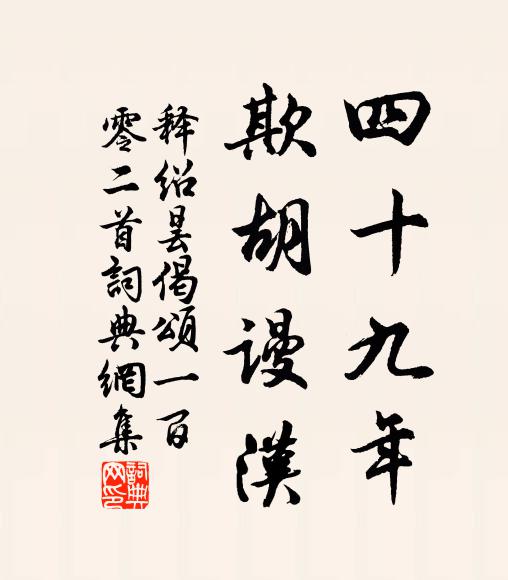 四十九年
欺胡谩漢
释绍昙偈頌一百
零二首詞典網集
詞典網印